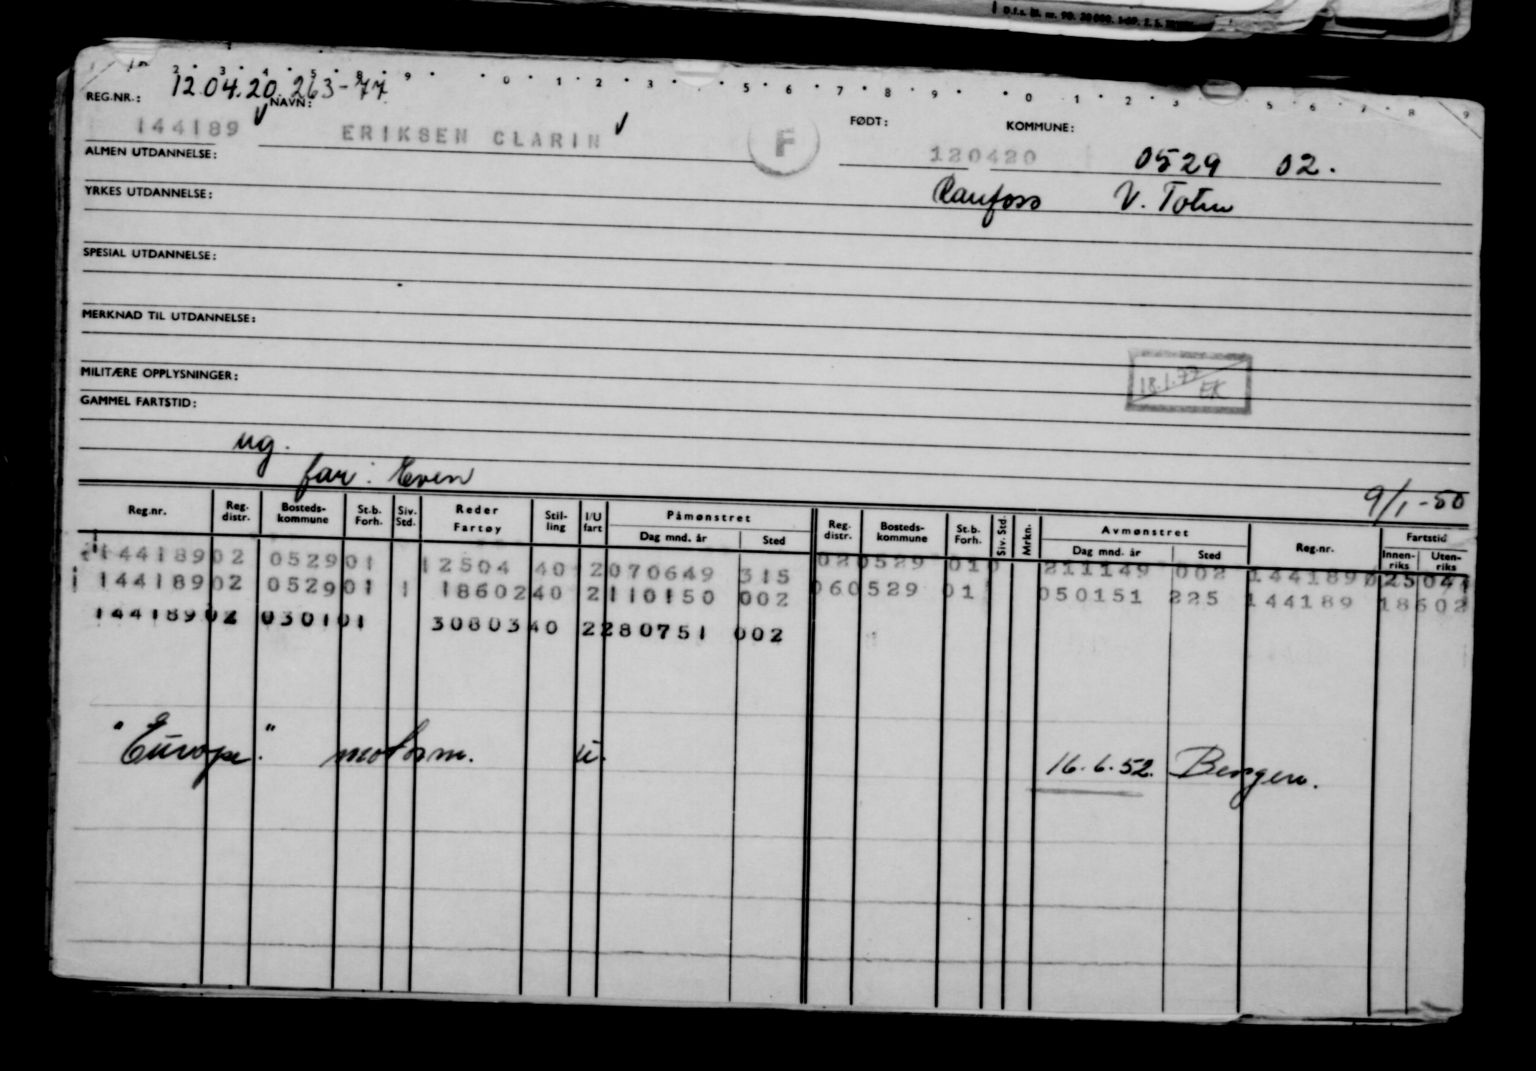 D.f.s. Bl. nr. 90. 20 000.
2 3 4 5 8 9 0 1 2 3 5 6 7 8 9 0 1 2 3 5 6 7 8 9
12.04.20.263-77
REG.NR.: NAVN: FØDT: KOMMUNE:
144189 ERIKSEN CLARIN F 120420 0529 02.
ALMEN UTDANNELSE:
Raufoss V. Toten
YRKES UTDANNELSE:
SPESIAL UTDANNELSE:
MERKNAD TIL UTDANNELSE:
MILITÆRE OPPLYSNINGER:
18.1.77 EK
GAMMEL FARTSTID:
ug.
far: Even
9/1-50
Reg.nr. Reg. distr. Bosteds-kommune St.b. Forh. Siv. Std. Reder Fartøy Stil-ling I/U fart Påmønstret Dag mnd. år Sted Reg. distr. Bosteds-kommune St.b. Forh. Siv. Std. Mrkn. Avmønstret Dag mnd. år Sted Reg.nr. Fartstid Innen-riks Uten-riks
144189 02 0529 01 12504 40 2 070649 315 02 0529 01 0 211149 002 144189
144189 02 0529 01 1 18602 40 2 110150 002 06 0529 01 050151 225 144189 18602
144189 02 0301 01 30803 40 2 280751 002
"Europe." motorm. u. 16.6.52. Bergen.